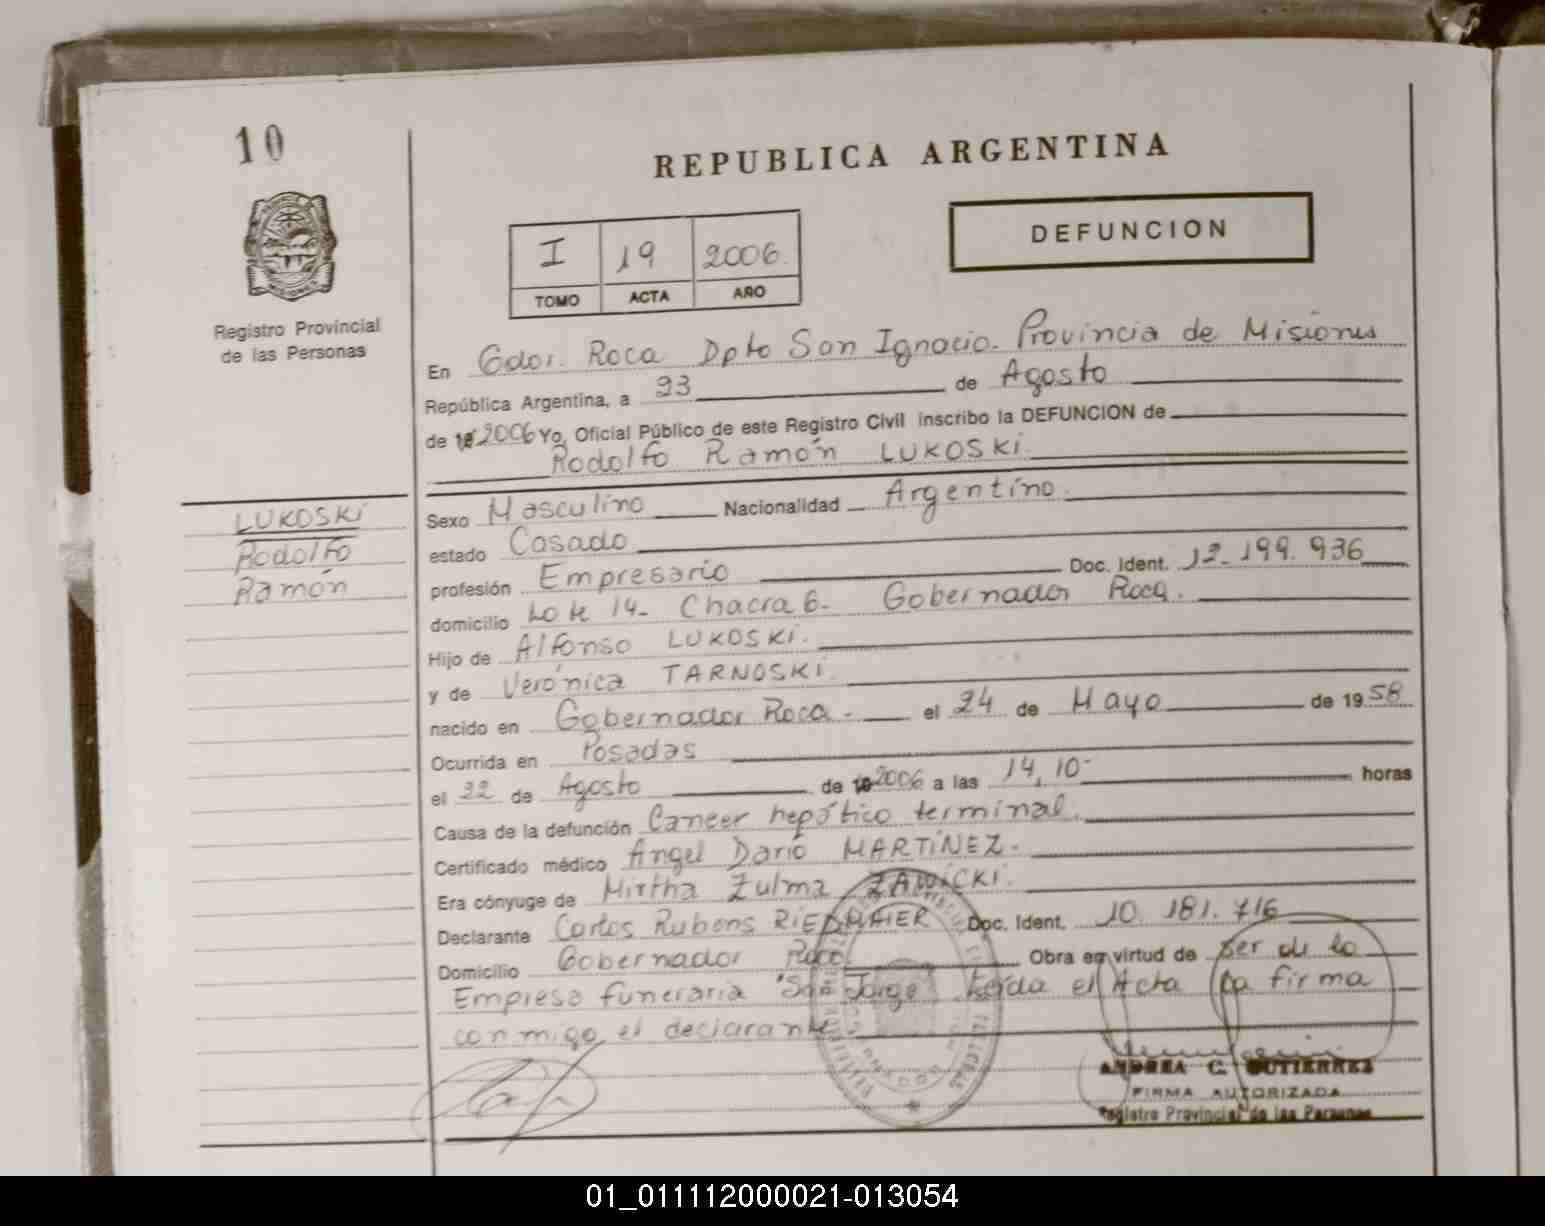 10
REPUBLICA ARGENTINA
DEFUNCION
I 19 2006.
TOMO ACTA AÑO
Registro Provincial
de las Personas
En Gdor. Roca Dpto San Ignacio. Provincia de Misiones
República Argentina, a 23 de Agosto
de 19 2006 Yo, Oficial Público de este Registro Civil inscribo la DEFUNCION de
Rodolfo Ramón LUKOSKI.
LUKOSKI
Rodolfo
Ramón
Sexo Masculino Nacionalidad Argentino.
estado Casado
profesión Empresario Doc. Ident. 12.199.936
domicilio Lote 14- Chacra 6- Gobernador Roca.
Hijo de Alfonso LUKOSKI.
y de Verónica TARNOSKI.
nacido en Gobernador Roca- el 24 de Mayo de 1958
Ocurrida en Posadas
el 22 de Agosto de 19 2006 a las 14,10- horas
Causa de la defunción Cancer hepático terminal.
Certificado médico Angel Darío MARTÍNEZ-
Era cónyuge de Mirtha Zulma ZAWICKI.
Declarante Carlos Rubens RIEDMAIER Doc. Ident. 10.181.716
Domicilio Gobernador Roca Obra en virtud de ser de la
Empresa funeraria "San Jorge" Leída el Acta la firma
conmigo el declarante
ANDREA C. GUTIERREZ
FIRMA AUTORIZADA
Registro Provincial de las Personas
01_011112000021-013054